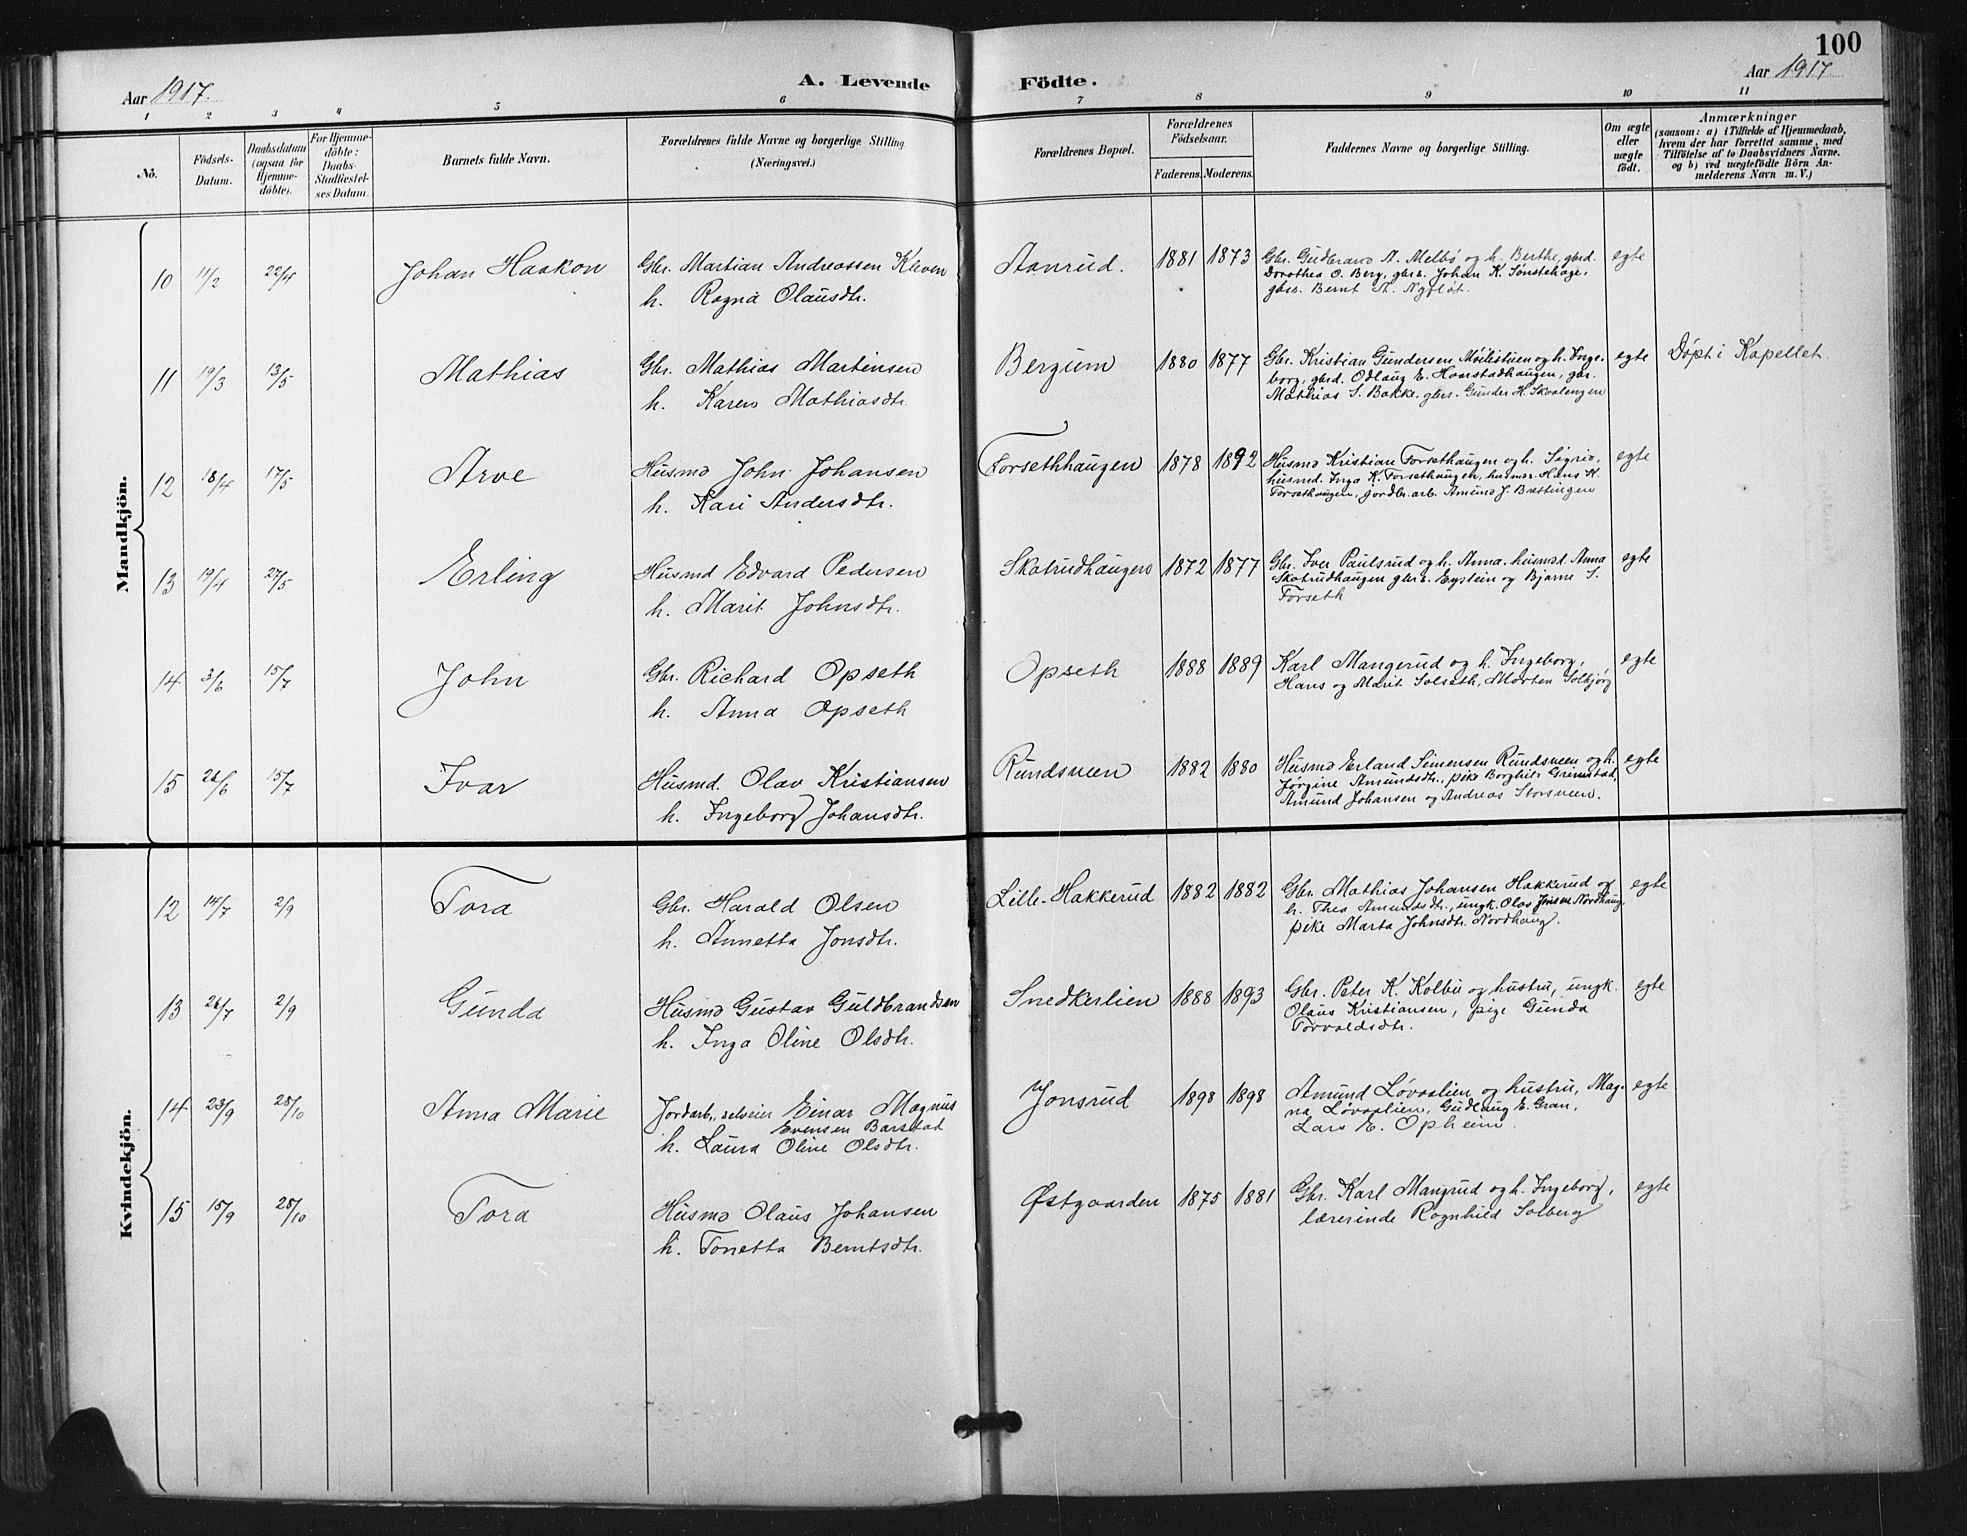 100
Aar 1917.
A. Levende Födte.
Aar 1917.
1 2 3 4 5 6 7 8 9 10 11
No.
Födsels-Datum.
Daabsdatum (ogsaa for Hjemme-döbte).
For Hjemme-döbte: Daabs-Stadfæstel-ses Datum.
Barnets fulde Navn.
Forældrenes fulde Navne og borgerlige Stilling (Næringsvei.)
Forældrenes Bopæl.
Forældrenes Födselsaar.
Faderens. Moderens.
Faddernes Navne og borgerlige Stilling.
Om ægte eller uægte födt.
Anmærkninger
(saasom: a) i Tilfælde af Hjemmedaab,
hvem der har forrettet samme, med
Tilföielse af to Daabsvidners Navne,
og b) ved uægtefödte Börn An-
melderens Navn m. V.)
Mandkjön.
10 11/2 22/4 Johan Haakon Gbr. Martian Andreassen Kleven Aanrud. 1881 1873 Gbr. Gudbrand A. Melbø og h. Berthe, gbrd. egte
h. Ragna Olausdtr. Dorothea O. Berg, gbrs. Johan K. Sønstehage,
gbrs. Bernt A.
11 19/3 13/5 Mathias Gbr. Mathias Martinsen Bergum 1880 1877 Gbr. Kristian Gundersen Møllstuen og h. Inge- egte Döpt i Kapellet.
h. Karen Mathiasdtr. borg, gbrd. Odlaug E. Haarstadhaugen, gbr.
Mathias S. Bakke, gbrs. Gunder H. Skvalengen
12 18/4 17/5 Arve Husmd John Johansen Forsethhaugen 1878 1892 Husmd Kristian Forsethaugen og h. Sigrid, egte
h. Kari Andersdtr. husmd. Inga K. Forsethaugen, husms. Hans K.
Forsethaugen, jordbr. arb. Amund J. Brettingen
13 19/4 27/5 Erling Husmd Edvard Pedersen Skatrudhaugen 1872 1877 Gbr. Iver Paulsrud og h. Anna, husmd. Anna egte
h. Marit Johnsdtr. Skatrudhaugen gbrs. Eystein og Bjarne S.
Forseth
14 3/6 15/7 John Gbr. Richard Opseth Opseth 1888 1889 Karl Mangerud og h. Ingeborg, egte
h. Anna Opseth Hans og Marit Solseth, Morten Solbjørg
15 26/6 15/7 Ivar Husmd. Olav Kristiansen Rundsveen 1882 1880 Husmd Erland Simensen Rundsveen og h. egte
h. Ingeborg Johansdtr. Jørgine Amundsdtr., pike Borghild Grimstad,
Amund Johansen og Andreas Storsveen.
Kvindekjön.
12 14/7 2/9 Tora Gbr. Harald Olsen Lille-Hakkerud 1882 1882 Gbr. Mathias Johansen Hakkerud og egte
h. Annetta Jonsdtr. h. Thea Amundsdtr., ungk. Olav Jonsen Nordhaug,
pike Marta Johnsdtr. Nordhaug.
13 26/7 2/9 Gunda Husmd Gustav Guldbrandsen Snedkerlien 1888 1893 Gbr. Peter K. Kolbu og hustru, ungk. egte
h. Inga Oline Olsdtr. Olaus Kristiansen, pige Gunda
Torvaldsdtr.
14 23/9 28/10 Anna Marie Jordarb., selveier Einar Magnus Jonsrud 1898 1898 Amund Løvaslien og hustru, Mag- egte
Evensen Barstad na Løvaslien, Gudlaug E. Gran,
h. Laura Oline Olsdtr. Lars E. Opheim.
15 15/9 28/10 Tora Husmd Olaus Johansen Østgaarden 1875 1881 Gbr. Karl Mangrud og h. Ingeborg, egte
h. Tonetta Berntsdtr. lærerinde Ragnhild Solberg